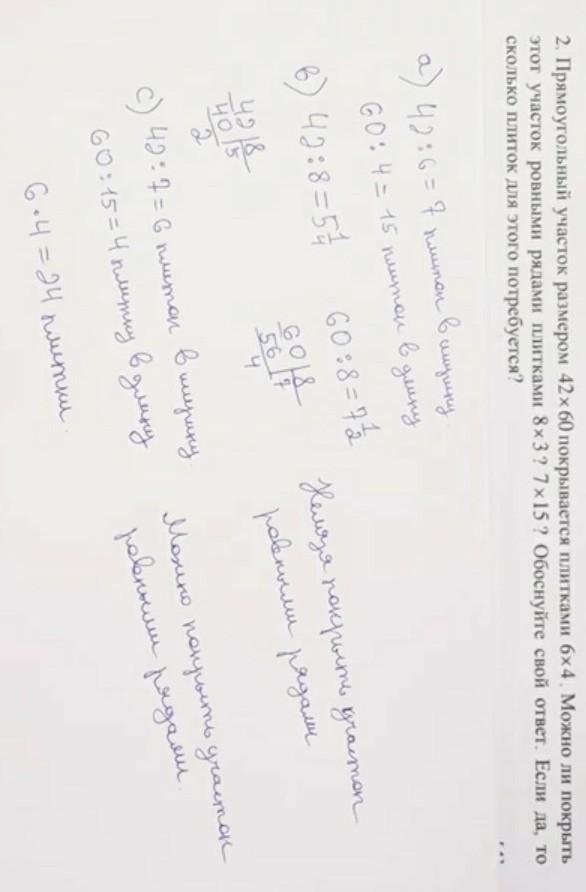 2. Прямоугольный участок размером 42×60 покрывается плитками 6×4. Можно ли покрыть
этот участок ровными рядами плитками 8×3? 7×15? Обоснуйте свой ответ. Если да, то
сколько плиток для этого потребуется?
a) 42:6=7 плиток в ширину
60:4=15 плиток в длину
в) 42:8=5 1/4
60:8=7 1/2
42 | 8
40 | 5
2
60 | 8
56 | 7
4
Нельзя покрыть участок
ровными рядами
c) 42:7=6 плиток в ширину
60:15=4 плитки в длину
Можно покрыть участок
ровными рядами.
6·4=24 плитки.